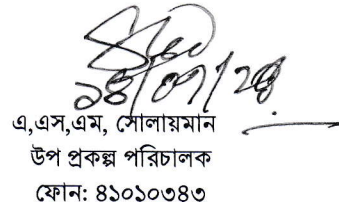 ১৪/০৭/২৪
এ,এস,এম, সোলায়মান
উপ প্রকল্প পরিচালক
ফোন: ৪১০১০৩৪৩